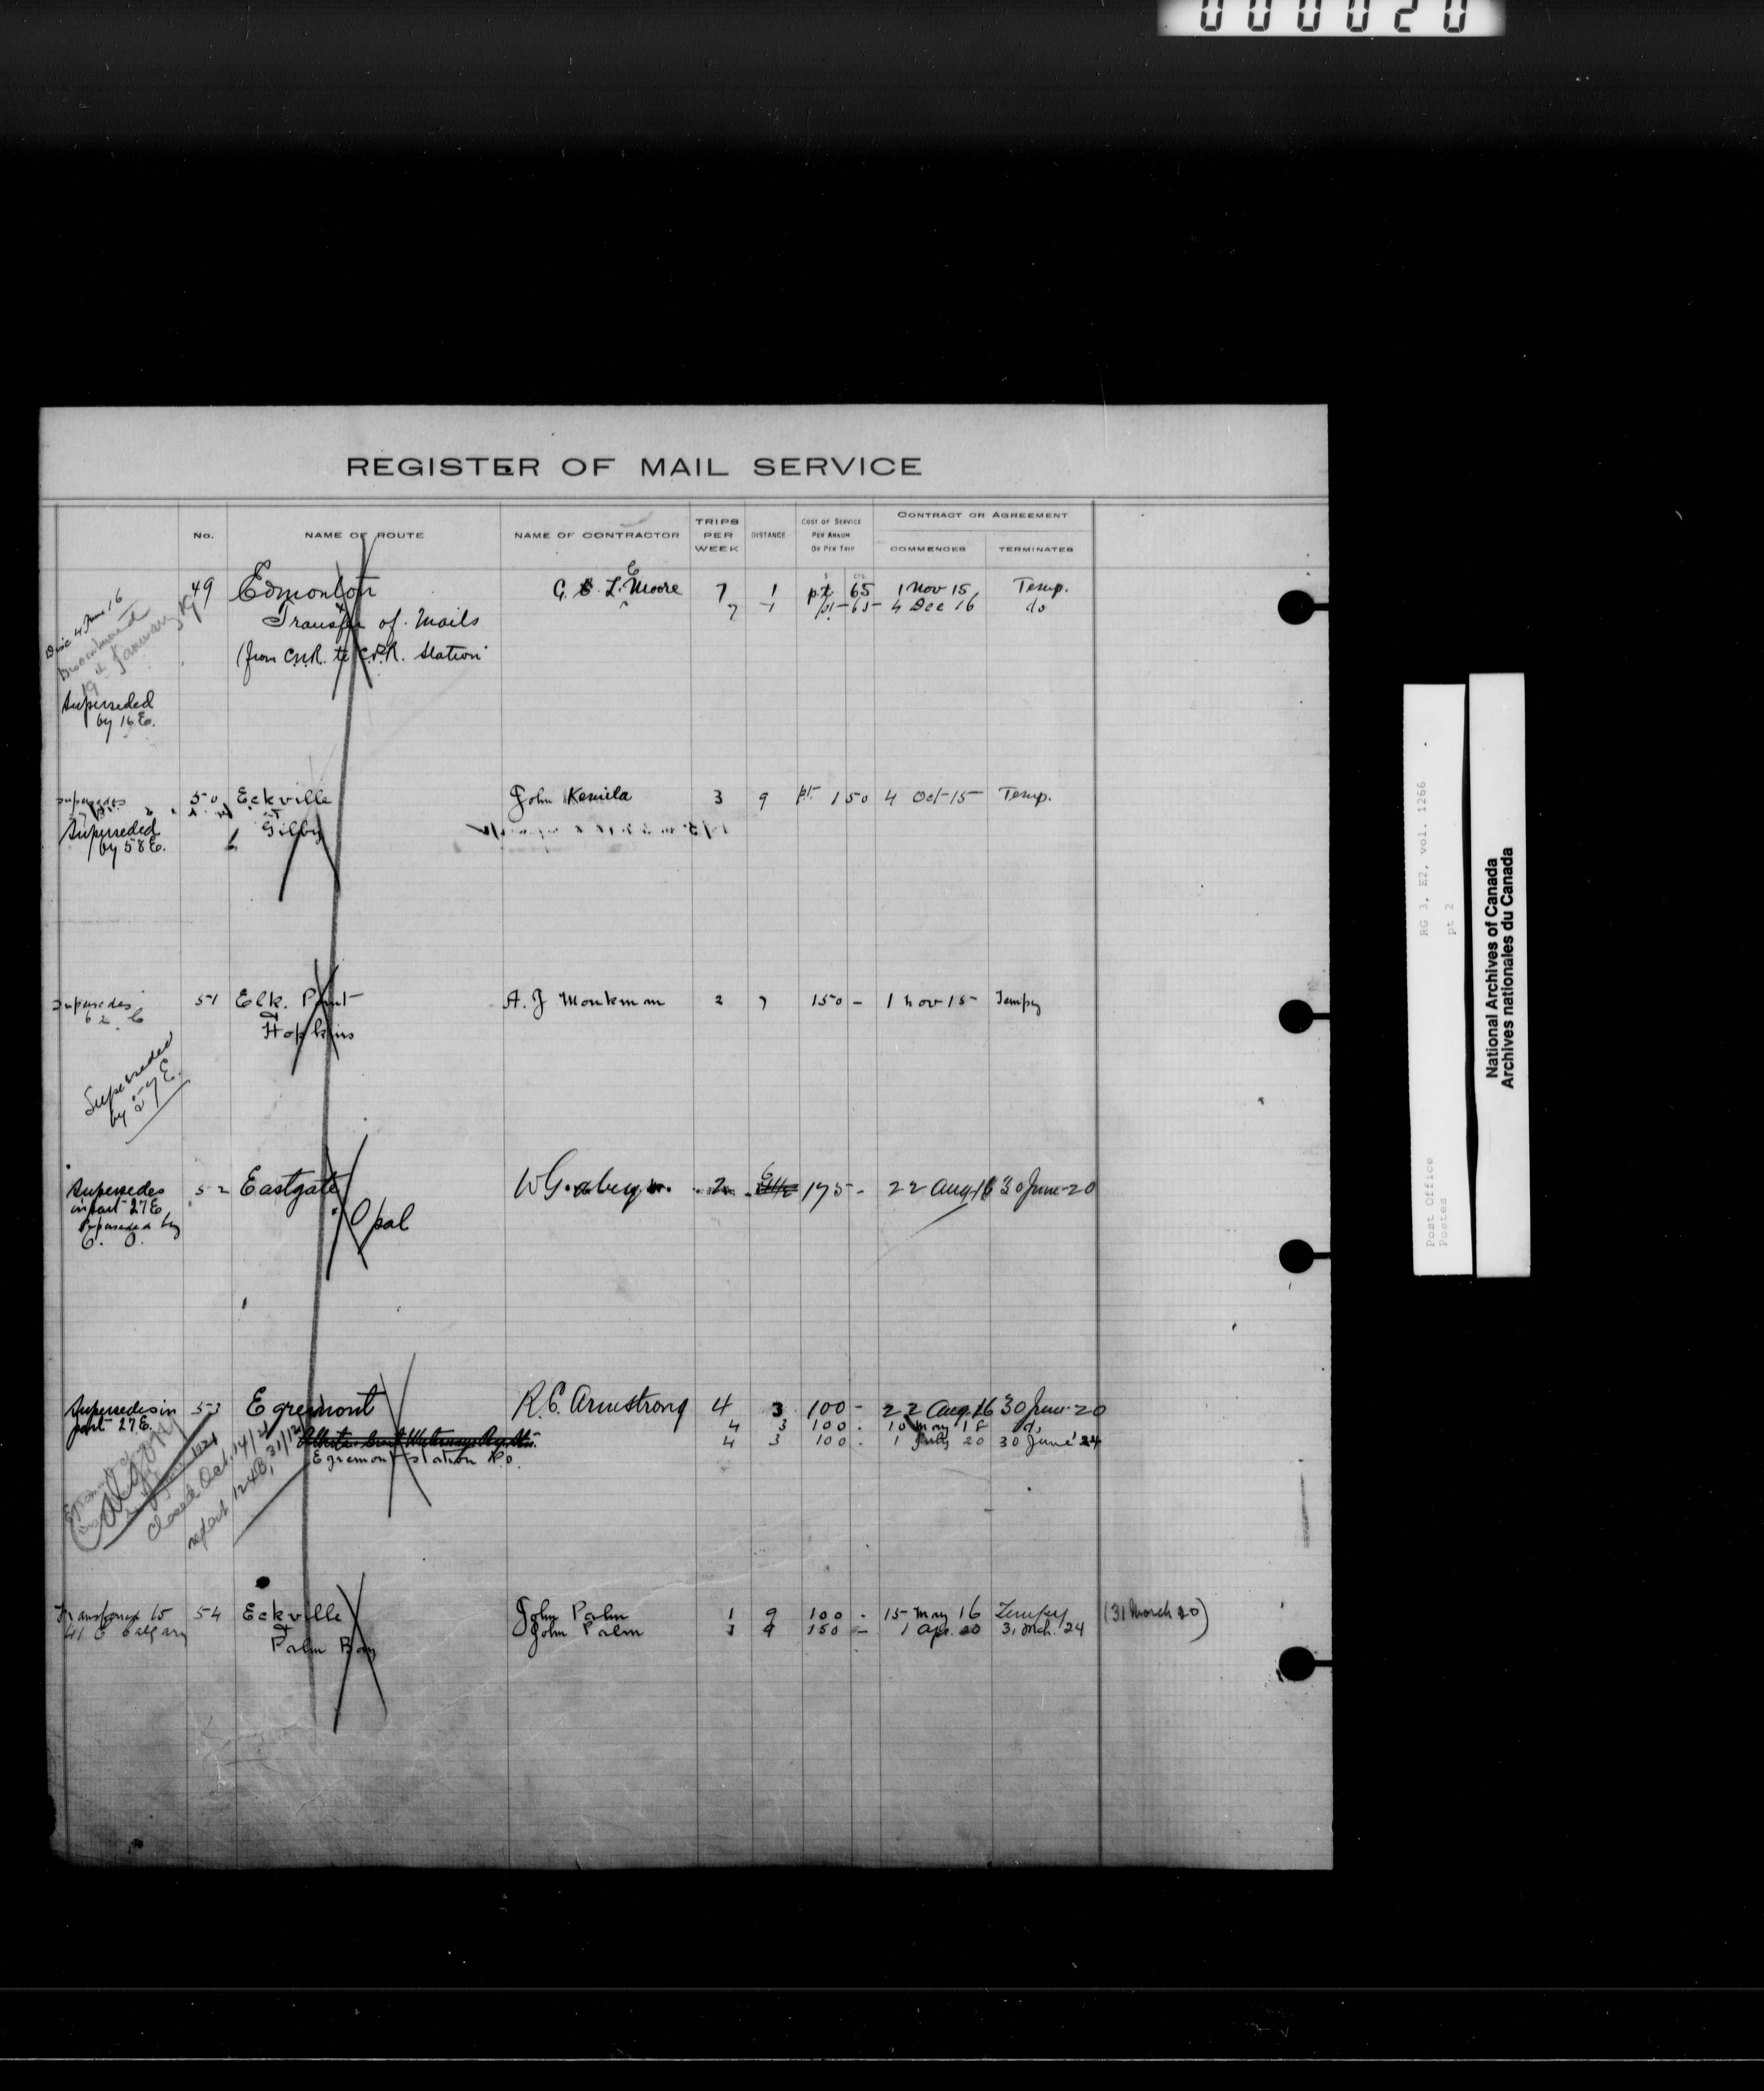 000020
REGISTER OF MAIL SERVICE
No. NAME OF ROUTE NAME OF CONTRACTOR TRIPS PER WEEK DISTANCE COST OF SERVICE PER ANNUM OR PER TRIP CONTRACT OR AGREEMENT COMMENCES TERMINATES
$ CTS.
49 Edmonton G. L. E. Moore 7 1 p.t. 65 1 Nov 15 Temp.
Transfer of Mails 7 1 p.t. 65 4 Dec 16 do
(from C.N.R. to C.P.R. Station
Disc 4 June 16
Discontinued
19th January
Superseded
by 16 E.
Supersedes 50 Eckville John Kemila 3 9 pt 1 50 4 Oct 15 Temp.
& Gilby
Superseded
by 58 E.
Supersedes 51 Elk Point A. J Monkman 2 7 150 - 1 Nov 15 Tempy
62 E
& Hopkins
Superseded
by 57 E.
Supersedes 52 Eastgate 2 175 - 22 Aug 16 30 June 20
in part 27 E
Superseded by
Opal
Supersedes in 53 Egremont R. C. Armstrong 4 3 100 - 22 Aug. 16 30 June 20
part 27 E.
4 3 100 - 10 May 18 do
4 3 100 - 1 July 20 30 June 24
Egremont Station P.O.
Closed Oct. 14/21
report 124B, 31/12
Transferred to 54 Eckville John Palm 1 9 100 - 15 May 16 Tempy (31 March 20)
41 E Calgary John Palm 1 9 150 - 1 Apr. 20 31 Mch. 24
& Palm Bay
RG 3, E2, vol. 1266
pt 2
Post Office
Postes
National Archives of Canada
Archives nationales du Canada